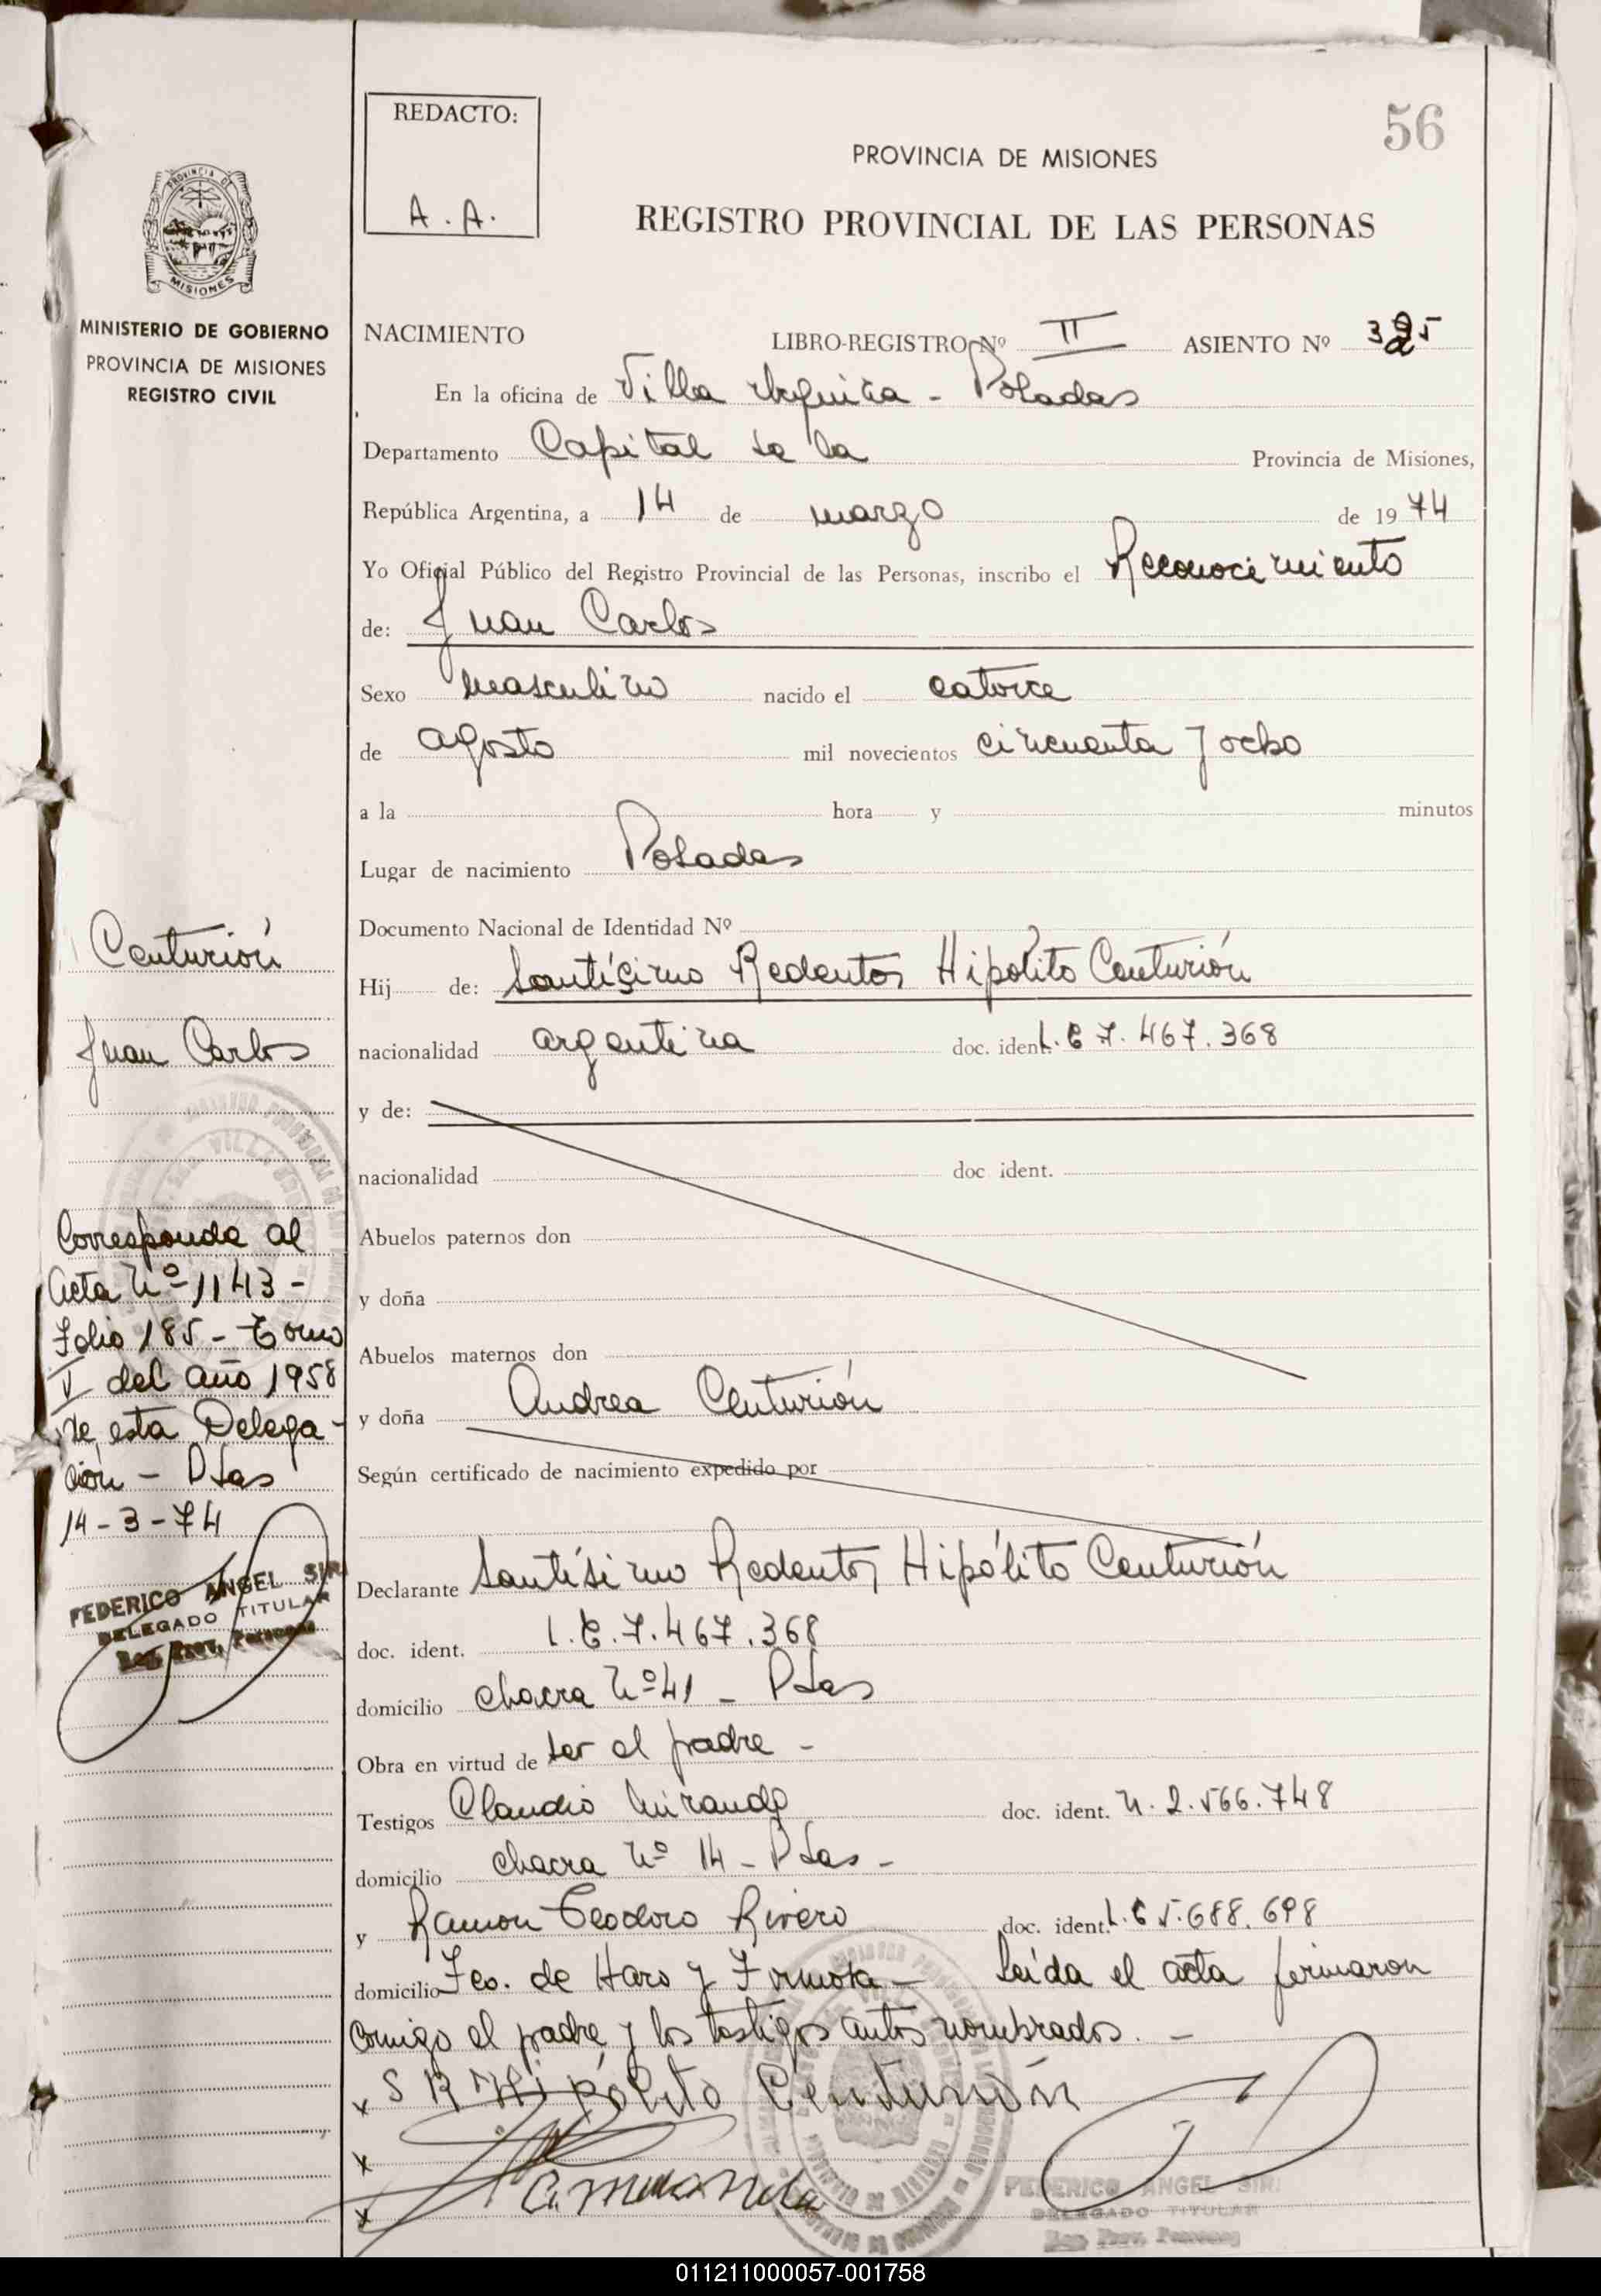 56
REDACTO:
A. A.
PROVINCIA DE MISIONES
REGISTRO PROVINCIAL DE LAS PERSONAS
PROVINCIA DE
MISIONES
MINISTERIO DE GOBIERNO
PROVINCIA DE MISIONES
REGISTRO CIVIL
NACIMIENTO LIBRO-REGISTRO Nº II ASIENTO Nº 325
En la oficina de Villa Urquiza - Posadas
Departamento Capital de la Provincia de Misiones,
República Argentina, a 14 de marzo de 1974
Yo Oficial Público del Registro Provincial de las Personas, inscribo el Reconocimiento
de: Juan Carlos
Sexo masculino nacido el catorce
de agosto mil novecientos cincuenta y ocho
a la hora y minutos
Lugar de nacimiento Posadas
Documento Nacional de Identidad Nº
Hij de: Santísimo Redentor Hipólito Centurión
nacionalidad argentina doc. ident. L.E 7.467.368
y de:
nacionalidad doc ident.
Abuelos paternos don
y doña
Abuelos maternos don
y doña Andrea Centurión
Según certificado de nacimiento expedido por
Declarante Santísimo Redentor Hipólito Centurión
doc. ident. L.E. 7.467.368
domicilio chacra Nº 41 - Pdas
Obra en virtud de ser el padre -
Testigos Claudio Miranda doc. ident. M. 2.566.748
domicilio chacra Nº 14 - Pdas -
y Ramon Teodoro Rivero doc. ident. L.E 5.688.698
domicilio Fco. de Haro y Formosa - Leída el acta firmaron
conmigo el padre y los testigos antes nombrados. -
x S R Hipólito Centurión
x
x C. Miranda
FEDERICO ANGEL SIRI
DELEGADO TITULAR
Reg. Prov. Personas
Centurión
Juan Carlos
Corresponde al
Acta Nº 1143 -
Folio 185 - Tomo
V del año 1958
de esta Delega-
ción - Pdas
14-3-74
FEDERICO ANGEL SIRI
DELEGADO TITULAR
Reg. Prov. Personas
011211000057-001758